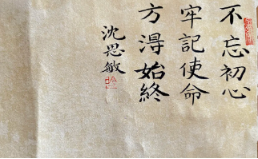 不忘初心
牢記使命
方得始終
沈思敏